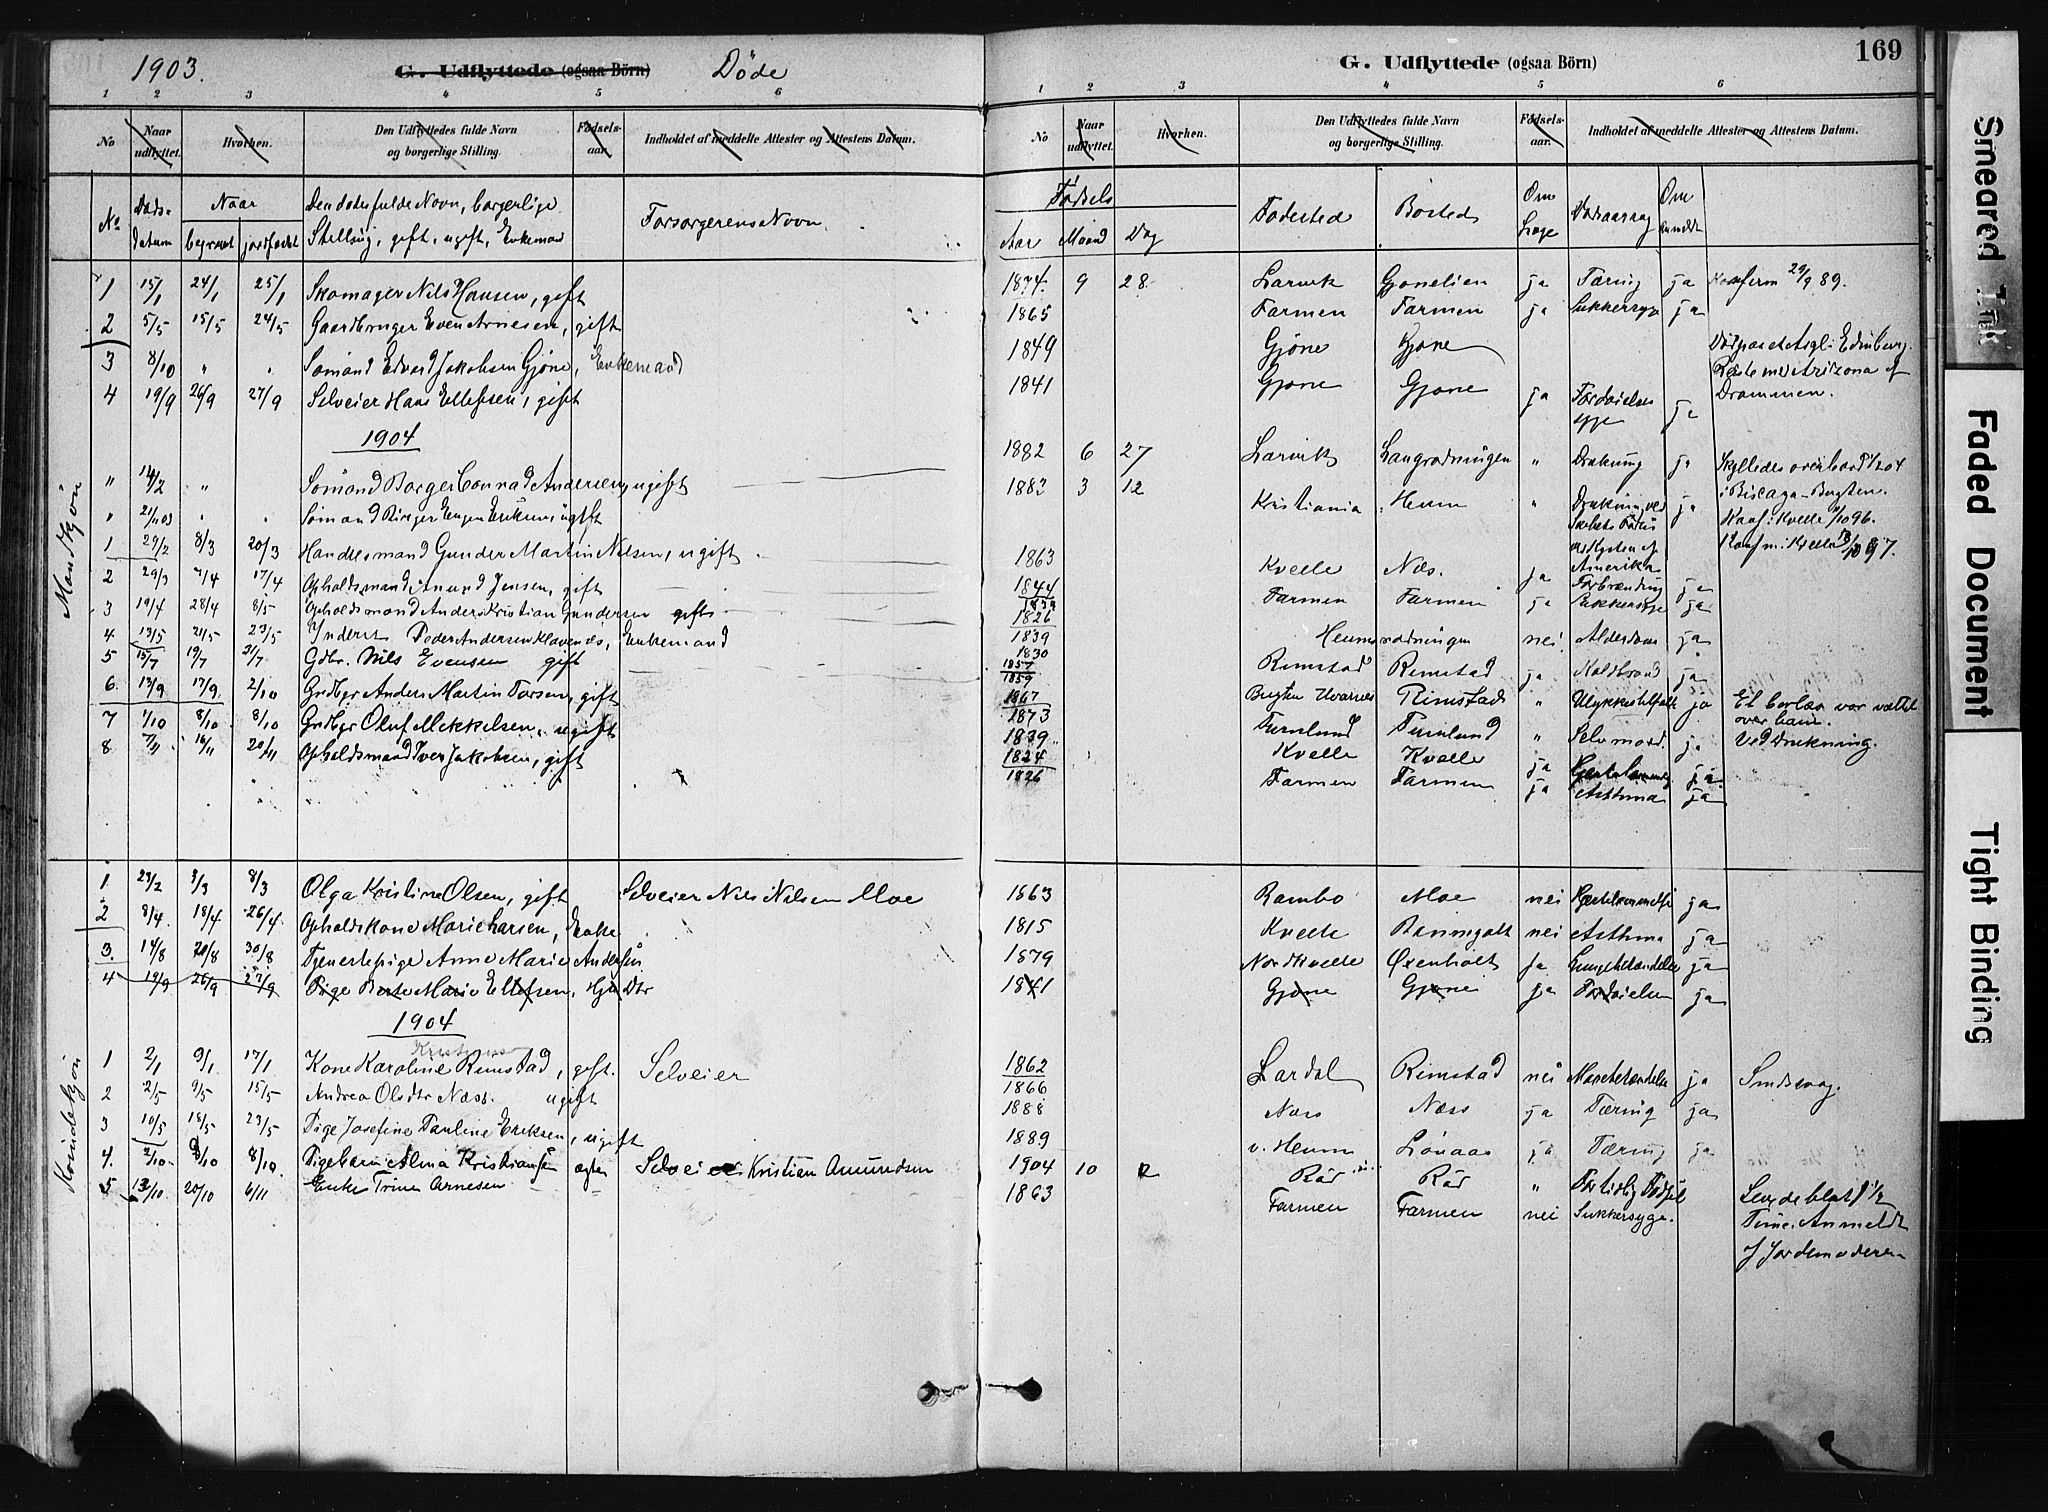 1903.
G. Udflyttede (ogsaa Börn) Døde
1 2 3 4 5 6
No Naar udflyttet. Hvorhen. Den Udflyttedes fulde Navn og borgerlige Stilling. Fødselsaar. Indholdet af meddelte Attester og Attestens Datum.
No Døds-datum Naar begravet jordfæstet Den dødes fulde Navn, borgerlige Stilling, gift, ugift, Enkemand Forsørgerens Navn.
Mandkjön
1 15/1 24/1 25/1 Skomager Nils Hansen, gift
2 5/5 15/5 24/5 Gaardbruger Even Arnesen, gift
3 8/10 " " Sømand Edvard Jakobsen Gjøne, Enkemand
4 19/9 26/9 27/9 Selveier Hans Ellefsen, gift
1904
" 14/2 " Sømand Borger Conrad Andersen, ugift
" 21/11 03 " " Sømand Birger Eugen Eriksen, ugift
1 29/2 8/3 20/3 Handelsmand Gunder Martin Nilsen, ugift
2 29/3 7/4 17/4 Opholdsmand Amund Jensen, gift
3 19/4 28/4 8/5 Opholdsmand Anders Kristian Gundersen gift
4 13/5 21/5 23/5 Inderst Peder Andersen Klavenes, Enkemand
5 15/7 19/7 31/7 Gdbr. Nils Evensen gift
6 13/9 17/9 2/10 Gndbgr Anders Martin Torsen, gift
7 1/10 8/10 8/10 Gndbgr Oluf Mekkelsen, ugift
8 7/11 16/11 20/11 Opholdsmand Iver Jakobsen, gift
Kvindekjön
1 23/2 3/3 8/3 Olga Kristine Olsen, gift Selveier Nils Nilsen Moe
2 8/4 18/4 26/4 Opholdskone Marie Larsen, Enke
3 14/8 20/8 30/8 Tjenestepige Anne Marie Andersen
4 19/9 26/9 27/9 Pige Berte Marie Ellefsen, Hjm Dtr
1904
1 2/1 9/1 17/1 Kone Karoline Rimstad, gift. Selveier
2 2/5 9/5 15/5 Andrea Olsdtr Næss. ugift
3 10/5 18/5 23/5 Pige Josefine Pauline Eriksen, ugift
4. 2/10 8/10 8/10 Pigebarn Alma Kristiansen ægte Selveier Kristian Amundsen
5 13/10 20/10 6/11 Enke Trine Arnesen
G. Udflyttede (ogsaa Börn)
169
1 2 3 4 5 6
No Naar udflyttet. Hvorhen. Den Udflyttedes fulde Navn og borgerlige Stilling. Fødselsaar. Indholdet af meddelte Attester og Attestens Datum.
Fødsels Aar Maaned Dag Fødested Bosted Om Læge Dødsaarsag Om anmeldt
1874. 9 28. Larvik Gjonelien ja Tæring ja Konferm 29/9 89.
1865 Farmen Farmen ja Sukkersyge ja
1849 Gjöne Gjone
1841 Gjone Gjone ja ja Drammen.
1882 6 27 Larvik Langrødningen " Drukning ja Skylledes overbord 1/2 04 i Biscaya-Bugten.
1883 3 12 Kristiania Heum " Drukning ved ja Konf. i Kvelle 96.
1863 Kvelle Næs. ja Amerika
1844 Farmen Farmen ja Sukkersyge ja
1826
1839 Heumsrødningen nei Alderdom ja
1830 Rimstad Rimstad ja Koldbrand ja
1857
1859
1867 Bugten Hvarnes Rimstad " Ulykkestilfælde ja Et Torlæs var væltet over ham.
1873 Furulund Furulund " Selvmord ja Ved Drukning.
1839 Kvelle Kvelle ja ja
1824
1826 Farmen Farmen ja Asthma ja
1863 Rambo Moe nei ja
1815 Kvelle nei Asthma ja
1879 Nordkvelle Oxenholt Ja Lungebetændelse ja
1841 Gjone Gjone ja Fordøielsen ja
1862 Lardal Rimstad nei Mavebetændelse ja
1866
1888 Næss Næss ja Tæring ja
1889 v. Heum Lönaas ja Tæring ja
1904 10 2 Råd Råd " For tidlig Fødsel Levede blot 1/2 Time. Anmeldt af Jordemoderen
1863 Farmen Farmen nei Sukkersyge.
Smeared Ink
Faded Document
Tight Binding